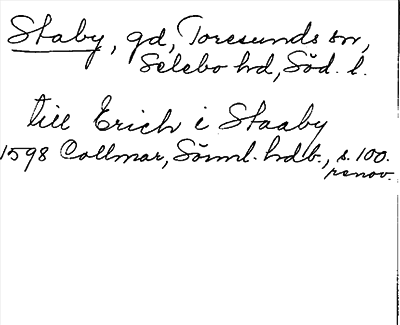 Staby, gd, Toresunds sn,
Selebo hd, Söd. l.
till Erich i Staaby
1598 Collmar, Sörml. hdb., s. 100.
renov.